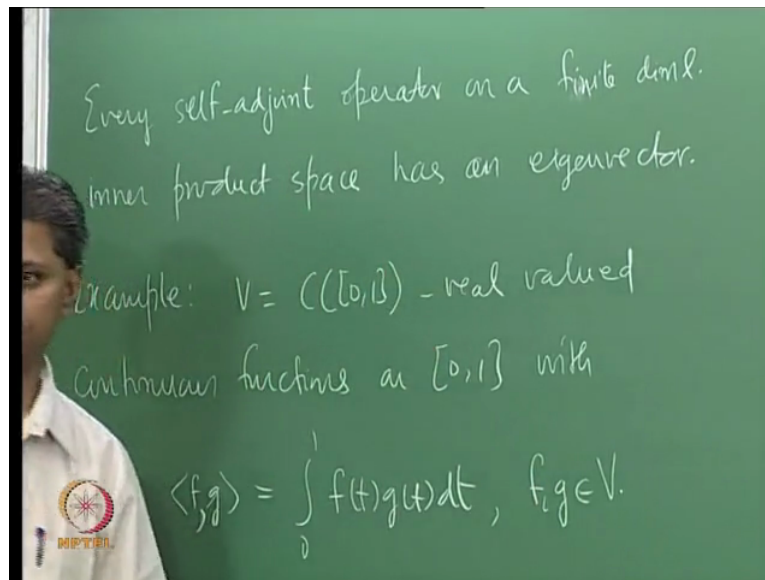 Every self-adjoint operator on a finite diml.
inner product space has an eigenvector.
Example: V = C([0,1]) - real valued
continuous functions on [0,1] with
⟨f,g⟩ = ∫₀¹ f(t)g(t)dt, f,g ∈ V.
NPTEL